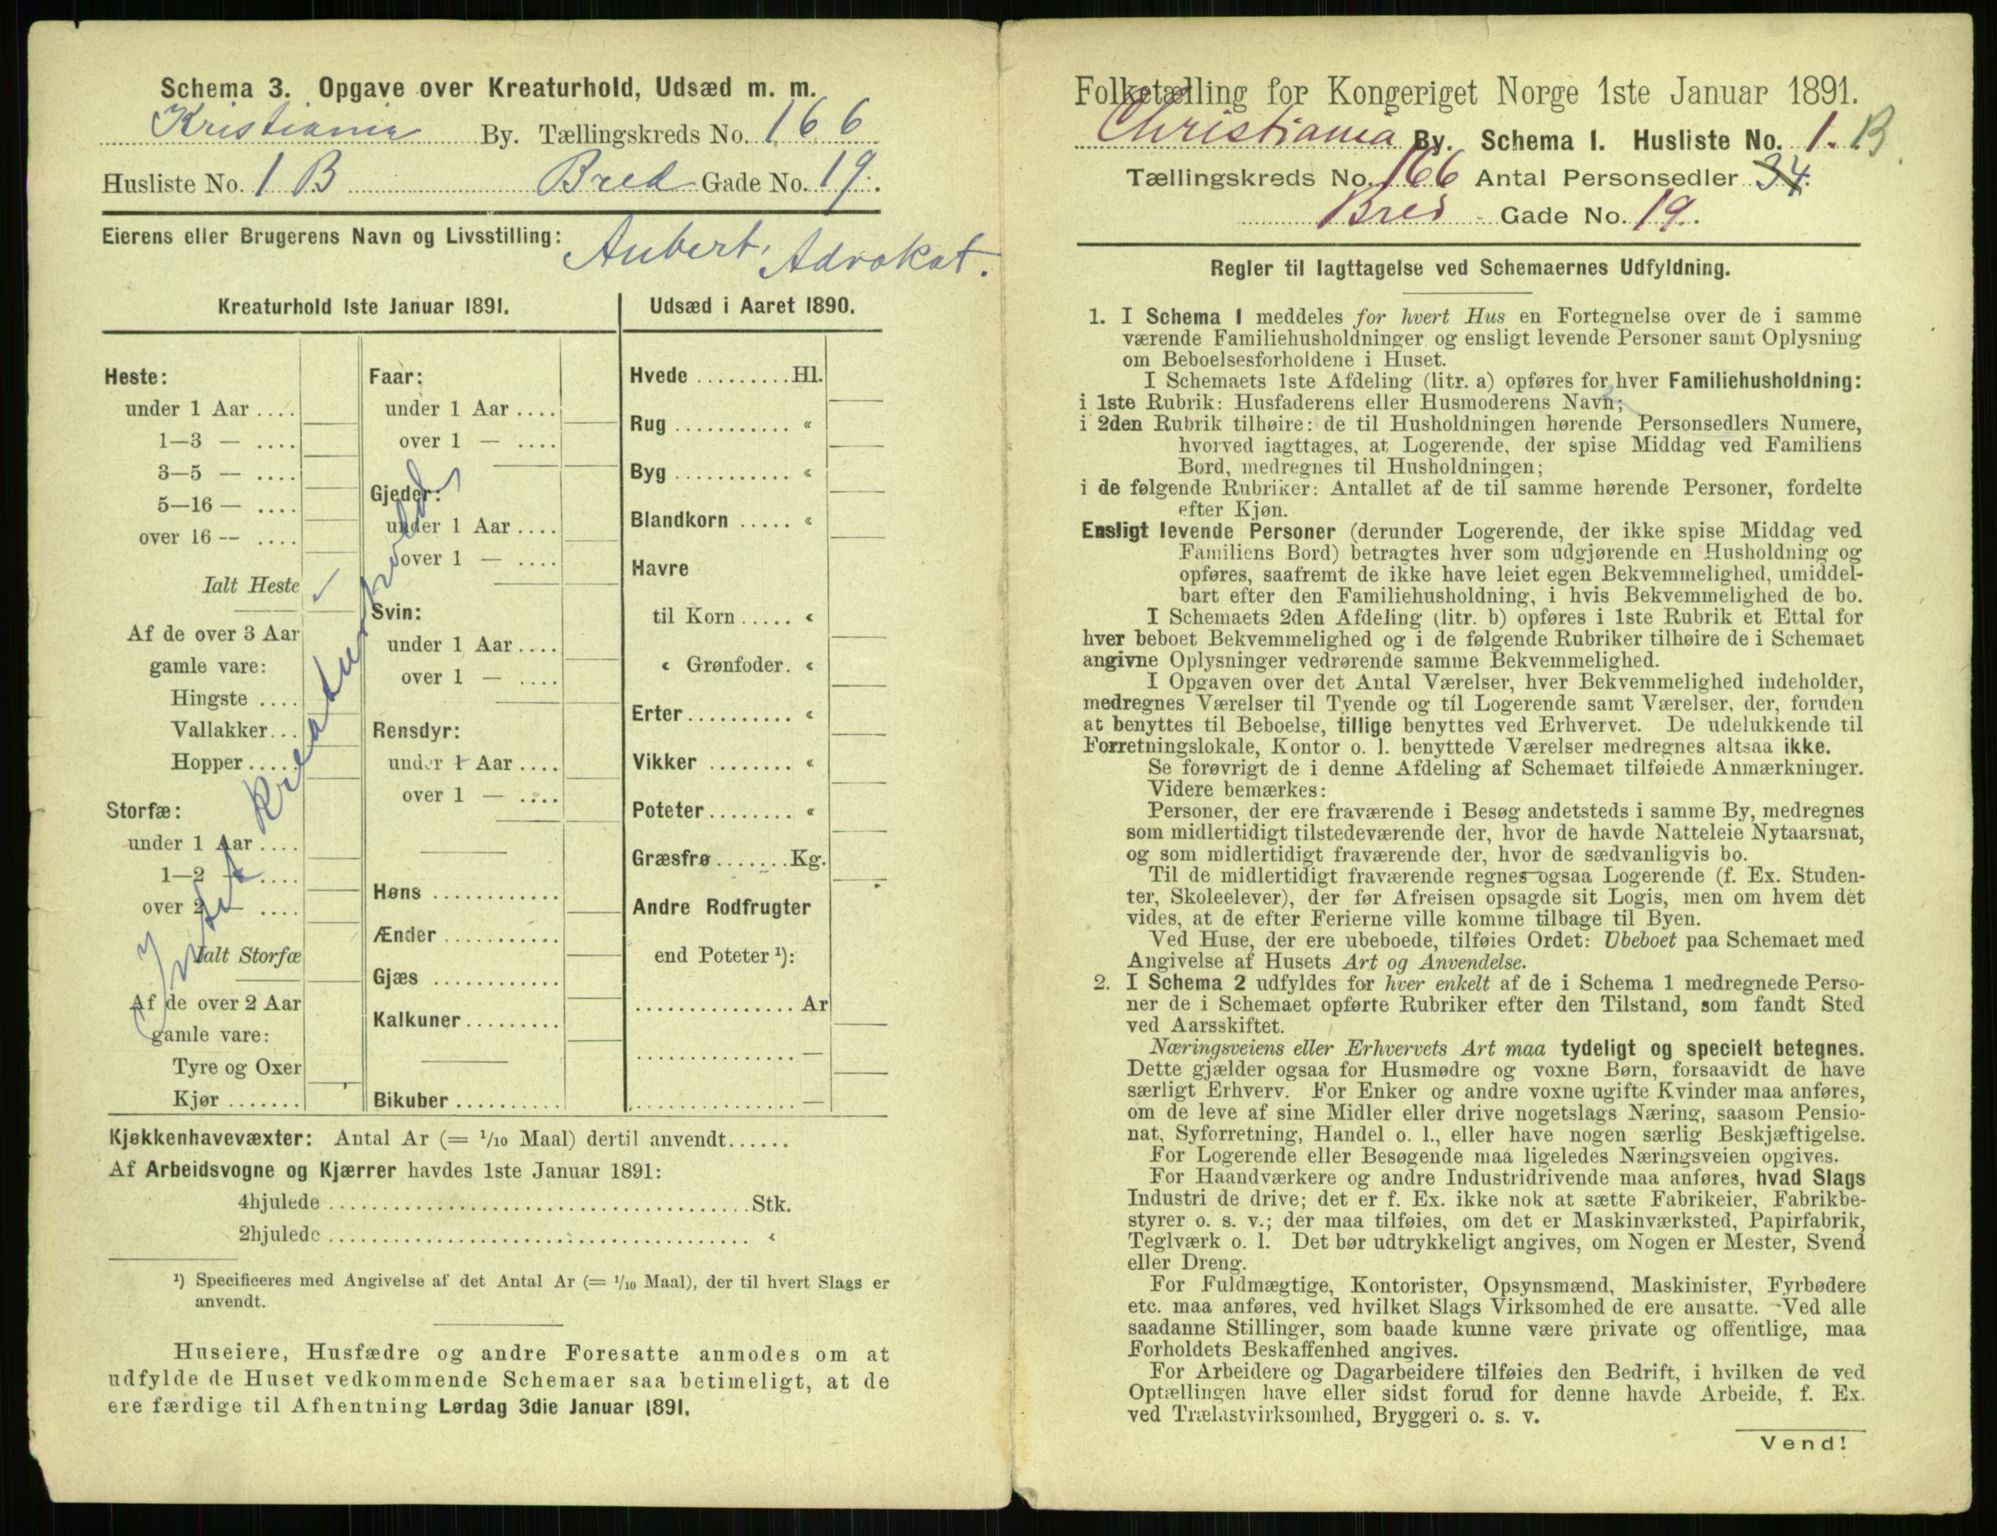 Schema 3. Opgave over Kreaturhold, Udsæd m. m.
Kristiania By. Tællingskreds No. 166
Husliste No. 1 B Bred Gade No. 19.
Eierens eller Brugerens Navn og Livsstilling: Aubert, Advokat.
Kreaturhold 1ste Januar 1891.
Heste:
under 1 Aar ....
1—3 — ....
3—5 — ....
5—16 — ....
over 16 — ....
Ialt Heste
Af de over 3 Aar
gamle vare:
Hingste ....
Vallakker...
Hopper.....
Storfæ:
under 1 Aar ....
1—2 — ....
over 2 — ....
Ialt Storfæ
Af de over 2 Aar
gamle vare:
Tyre og Oxer
Kjør .......
Intet Kreaturhold
Faar:
under 1 Aar ....
over 1 — ....
Gjeder:
under 1 Aar ....
over 1 — ....
Svin:
under 1 Aar ....
over 1 — ....
Rensdyr:
under 1 Aar ....
over 1 — ....
Høns ............
Ænder ...........
Gjæs ............
Kalkuner.........
Bikuber ..........
Udsæd i Aaret 1890.
Hvede .........Hl.
Rug ........... «
Byg ........... «
Blandkorn ..... «
Havre
til Korn ..... «
« Grønfoder. «
Erter.......... «
Vikker ........ «
Poteter........ «
Græsfrø .......Kg.
Andre Rodfrugter
end Poteter ¹):
............... Ar
............... —
............... —
Kjøkkenhavevæxter: Antal Ar (= 1/10 Maal) dertil anvendt......
Af Arbeidsvogne og Kjærrer havdes 1ste Januar 1891:
4hjulede ........................................Stk.
2hjulede ........................................ «
¹) Specificeres med Angivelse af det Antal Ar (= 1/10 Maal), der til hvert Slags er
anvendt.
Huseiere, Husfædre og andre Foresatte anmodes om at
udfylde de Huset vedkommende Schemaer saa betimeligt, at de
ere færdige til Afhentning Lørdag 3die Januar 1891.
Folketælling for Kongeriget Norge 1ste Januar 1891.
Christiania By. Schema 1. Husliste No. 1. B.
Tællingskreds No. 166 Antal Personsedler 34.
Bred - Gade No. 19.
Regler til Iagttagelse ved Schemaernes Udfyldning.
1. I Schema 1 meddeles for hvert Hus en Fortegnelse over de i samme
værende Familiehusholdninger og ensligt levende Personer samt Oplysning
om Beboelsesforholdene i Huset.
I Schemaets 1ste Afdeling (litr. a) opføres for hver Familiehusholdning:
i 1ste Rubrik: Husfaderens eller Husmoderens Navn;
i 2den Rubrik tilhøire: de til Husholdningen hørende Personsedlers Numere,
hvorved iagttages, at Logerende, der spise Middag ved Familiens
Bord, medregnes til Husholdningen;
i de følgende Rubriker: Antallet af de til samme hørende Personer, fordelte
efter Kjøn.
Ensligt levende Personer (derunder Logerende, der ikke spise Middag ved
Familiens Bord) betragtes hver som udgjørende en Husholdning og
opføres, saafremt de ikke have leiet egen Bekvemmelighed, umiddel-
bart efter den Familiehusholdning, i hvis Bekvemmelighed de bo.
I Schemaets 2den Afdeling (litr. b) opføres i 1ste Rubrik et Ettal for
hver beboet Bekvemmelighed og i de følgende Rubriker tilhøire de i Schemaet
angivne Oplysninger vedrørende samme Bekvemmelighed.
I Opgaven over det Antal Værelser, hver Bekvemmelighed indeholder,
medregnes Værelser til Tyende og til Logerende samt Værelser, der, foruden
at benyttes til Beboelse, tillige benyttes ved Erhvervet. De udelukkende til
Forretningslokale, Kontor o. l. benyttede Værelser medregnes altsaa ikke.
Se forøvrigt de i denne Afdeling af Schemaet tilføiede Anmærkninger.
Videre bemærkes:
Personer, der ere fraværende i Besøg andetsteds i samme By, medregnes
som midlertidigt tilstedeværende der, hvor de havde Natteleie Nytaarsnat,
og som midlertidigt fraværende der, hvor de sædvanligvis bo.
Til de midlertidigt fraværende regnes ogsaa Logerende (f. Ex. Studen-
ter, Skoleelever), der før Afreisen opsagde sit Logis, men om hvem det
vides, at de efter Ferierne ville komme tilbage til Byen.
Ved Huse, der ere ubeboede, tilføies Ordet: Ubeboet paa Schemaet med
Angivelse af Husets Art og Anvendelse.
2. I Schema 2 udfyldes for hver enkelt af de i Schema 1 medregnede Perso-
ner de i Schemaet opførte Rubriker efter den Tilstand, som fandt Sted
ved Aarsskiftet.
Næringsveiens eller Erhvervets Art maa tydeligt og specielt betegnes.
Dette gjælder ogsaa for Husmødre og voxne Børn, forsaavidt de have
særligt Erhverv. For Enker og andre voxne ugifte Kvinder maa anføres,
om de leve af sine Midler eller drive nogetslags Næring, saasom Pensio-
nat, Syforretning, Handel o. l., eller have nogen særlig Beskjæftigelse.
For Logerende eller Besøgende maa ligeledes Næringsveien opgives.
For Haandværkere og andre Industridrivende maa anføres, hvad Slags
Industri de drive; det er f. Ex. ikke nok at sætte Fabrikeier, Fabrikbe-
styrer o. s. v.; der maa tilføies, om det er Maskinværksted, Papirfabrik,
Teglværk o. l. Det bør udtrykkeligt angives, om Nogen er Mester, Svend
eller Dreng.
For Fuldmægtige, Kontorister, Opsynsmænd, Maskinister, Fyrbødere
etc. maa anføres, ved hvilket Slags Virksomhed de ere ansatte. Ved alle
saadanne Stillinger, som baade kunne være private og offentlige, maa
Forholdets Beskaffenhed angives.
For Arbeidere og Dagarbeidere tilføies den Bedrift, i hvilken de ved
Optællingen have eller sidst forud for denne havde Arbeide, f. Ex.
ved Trælastvirksomhed, Bryggeri o. s. v.
Vend!